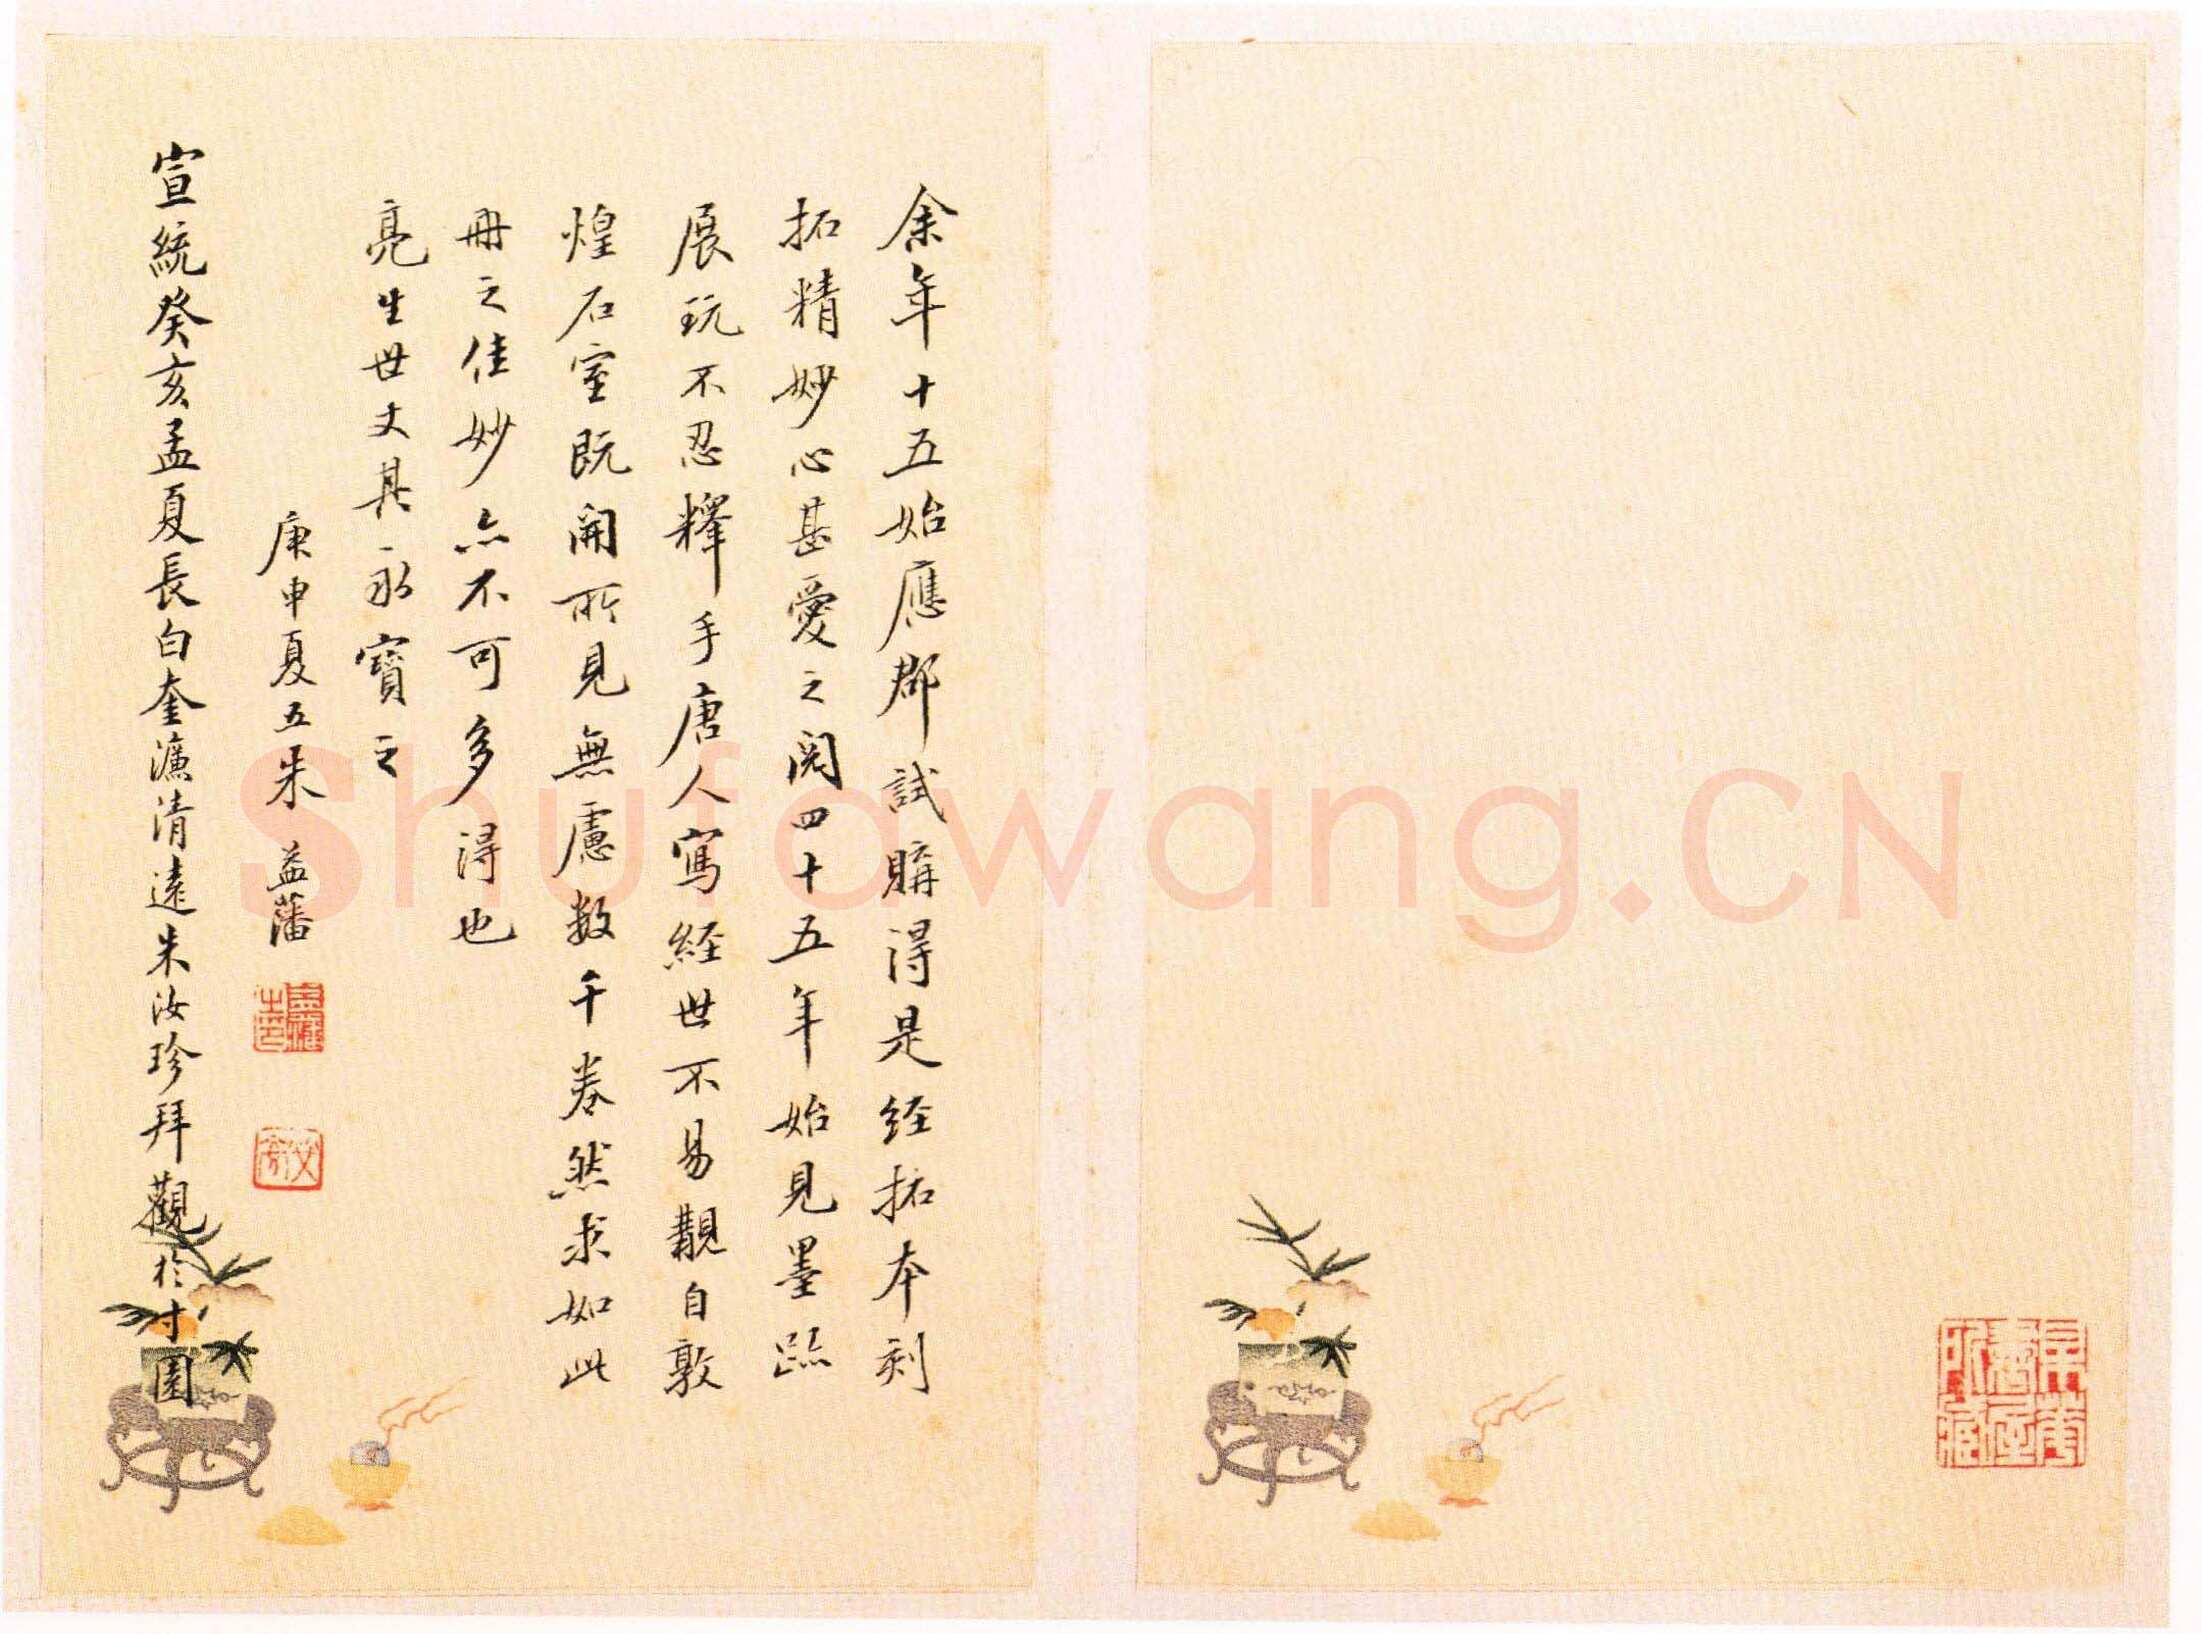 余年十五始應郡試購得是経拓本刻
拓精妙心甚愛之閱四十五年始見墨跡
展玩不忍釋手唐人寫経世不易覯自敦
煌石室既開所見無慮數千卷然求如此
冊之佳妙亦不可多得也
亮生世丈其永寶之
庚申夏五朱益藩
宣統癸亥孟夏長白奎濂清遠朱汝珍拜觀於寸園
Shufawang.CN